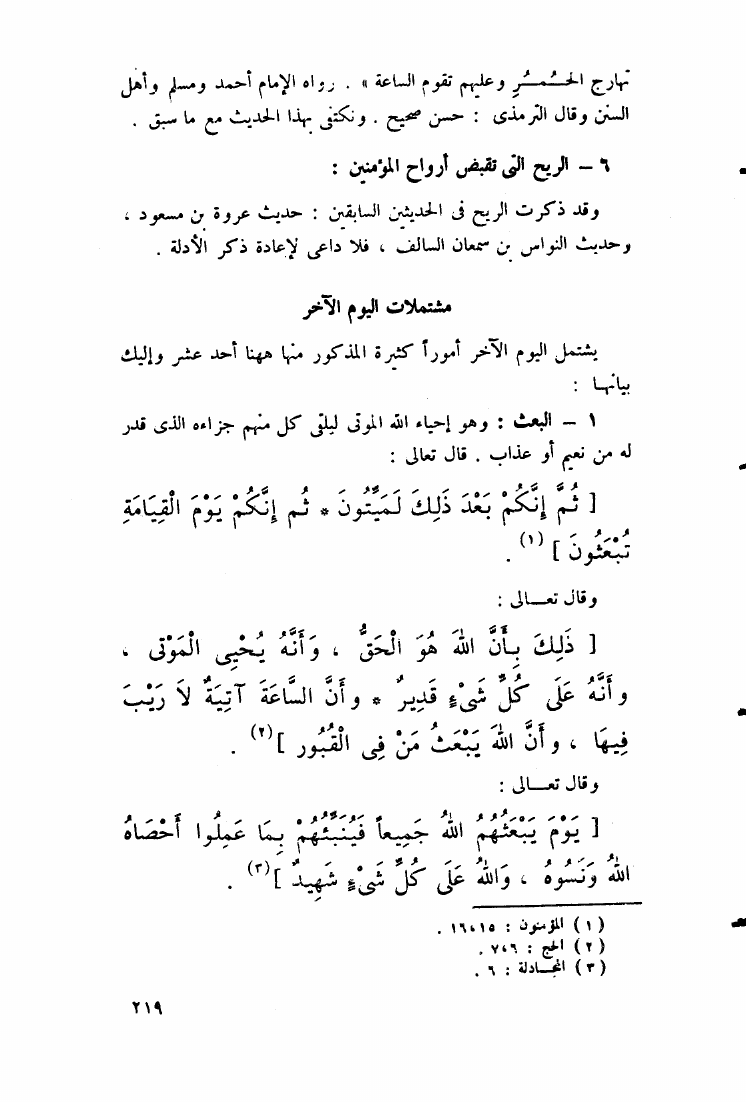 تهارج الحُمُر وعليهم تقوم الساعة » . رواه الإمام أحمد ومسلم وأهل
السنن وقال الترمذى : حسن صحيح . ونكتفى بهذا الحديث مع ما سبق .
٦ – الريح التى تقبض أرواح المؤمنين :
وقد ذكرت الريح فى الحديثين السابقين : حديث عروة بن مسعود ،
وحديث النواس بن سمعان السالف ، فلا داعى لإعادة ذكر الأدلة .
مشتملات اليوم الآخر
يشتمل اليوم الآخر أموراً كثيرة المذكور منها ههنا أحد عشر وإليك
بيانها :
١ – البعث : وهو إحياء الله الموتى ليلقى كل منهم جزاءه الذى قدر
له من نعيم أو عذاب . قال تعالى :
[ ثُمَّ إِنَّكُمْ بَعْدَ ذَلِكَ لَمَيِّتُونَ * ثُم إِنَّكُمْ يَوْمَ الْقِيَامَةِ
تُبْعَثُونَ ] (١) .
وقال تعـالى :
[ ذَلِكَ بِأَنَّ اللهَ هُوَ الْحَقُّ ، وَأَنَّهُ يُحْيِى الْمَوْتى ،
وأَنَّهُ عَلَى كُلِّ شَىْءٍ قَدِيرٌ * وأَنَّ السَّاعَةَ آتِيَةٌ لَا رَيْبَ
فِيهَا ، وأَنَّ اللهَ يَبْعَثُ مَنْ فِى الْقُبُورِ ] (٢) .
وقال تعـالى :
[ يَوْمَ يَبْعَثُهُمُ اللهُ جَمِيعاً فَيُنَبِّئُهُمْ بِمَا عَمِلُوا أَحْصَاهُ
اللهُ وَنَسُوهُ ، وَاللهُ عَلَى كُلِّ شَىْءٍ شَهِيدٌ ] (٣) .
(١) المؤمنون : ١٥،١٦ .
(٢) الحج : ٦،٧ .
(٣) المجـادلة : ٦ .
٢١٩